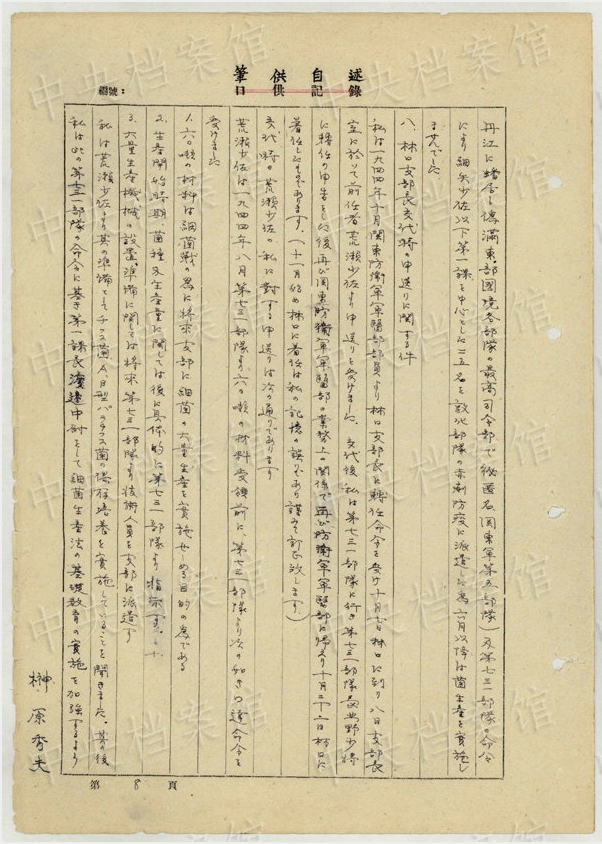 述自供筆
錄記供口
編號：
丹江に蟠居し
満東部國境各部隊の最高司令部で秘匿名関東軍第五部隊）及第七三一部隊の命令
により細矢少佐以下第一課を中心とした二五名を敦化部隊の赤痢防疫に派遣した為六月以降は菌生産を実施し
ませんでした
八、林口支部長交代時の申送りに関する件
私は一九四四年十月関東防衛軍軍醫部部員より林口支部長に轉任命令を受け十月七日林口に到り八日支部長
室に於いて前任者荒瀬少佐より申送りを受けました。交代後私は第七三一部隊に行き第七三一部隊長北野少将
に轉任の申告をした後再び関東防衛軍軍醫部の業務上の関係で再び防衛軍軍醫部に帰えり十月二十六日林口に
着任したものであります。（十一月始め林口に着任は私の記憶の誤りであり謹みて訂正致します）
交代時の荒瀬少佐の私に対する申送りは次の通りであります
荒瀬少佐は一九四四年八月第七三一部隊より六〇噸の材料受領前に、第七三一部隊より次の如き の達命令を
受けました
1. 六〇噸の材料は細菌戦の為に将来支部に細菌の大量生産を実施せしめる目的の為である
2. 生産開始時期菌種及生産量に関しては後に具体的に第七三一部隊より指示す
3. 大量生産機械の設置、準備に関しては将来第七三一部隊より技術人員を支部に派遣す
私は荒瀬少佐より其の準備としてチフス菌A.B型パラチフス菌の保存培養を実施していることを聞きました、其の後
私は此の第七三一部隊の命令に基き第一課長渡邊中尉をして細菌生産法の基礎教育の実施を加強するよう
榊原秀夫
第8頁
中央档案馆